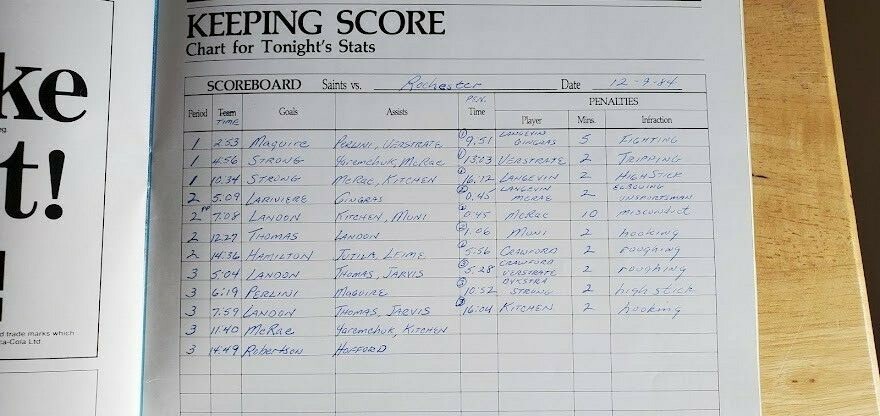 ke
t!
d trade marks which
ca-Cola Ltd
KEEPING SCORE
Chart for Tonight's Stats
SCOREBOARD Saints vs. Rochester Date 12-9-84
Period Team TIME Goals Assists PEN. Time PENALTIES
Player Mins. Infraction
1 2:53 Maguire PERLINI, VERSTRATE 1 9:51 LANGEVIN GINGRAS 5 FIGHTING
1 4:56 STRONG Yaremchuk, McRae 1 13:03 VERSTRATE 2 TRIPPING
1 10:34 STRONG McRAE, KITCHEN 1 16:12 LANGEVIN 2 HIGH STICK
2 5:09 LARIVIERE GINGRAS 2 0:45 LANGEVIN McRAE 2 ELBOWING UNSPORTSMAN
2 PP 7:08 LANDON KITCHEN, MUNI 2 0:45 McRae 10 misconduct
2 12:27 THOMAS LANDON 2 1:06 MUNI 2 hooking
2 14:36 HAMILTON JUTILA, LEIME 2 5:56 CRAWFORD 2 roughing
3 5:04 LANDON THOMAS, JARVIS 3 5:28 CRAWFORD VERSTRATE 2 roughing
3 6:19 PERLINI MAGUIRE 3 10:52 DYKSTRA STRONG 2 high stick
3 7:59 LANDON THOMAS, JARVIS 3 16:04 KITCHEN 2 hooking
3 11:40 McRae Yaremchuk, KITCHEN
3 14:49 Robertson HOFFORD